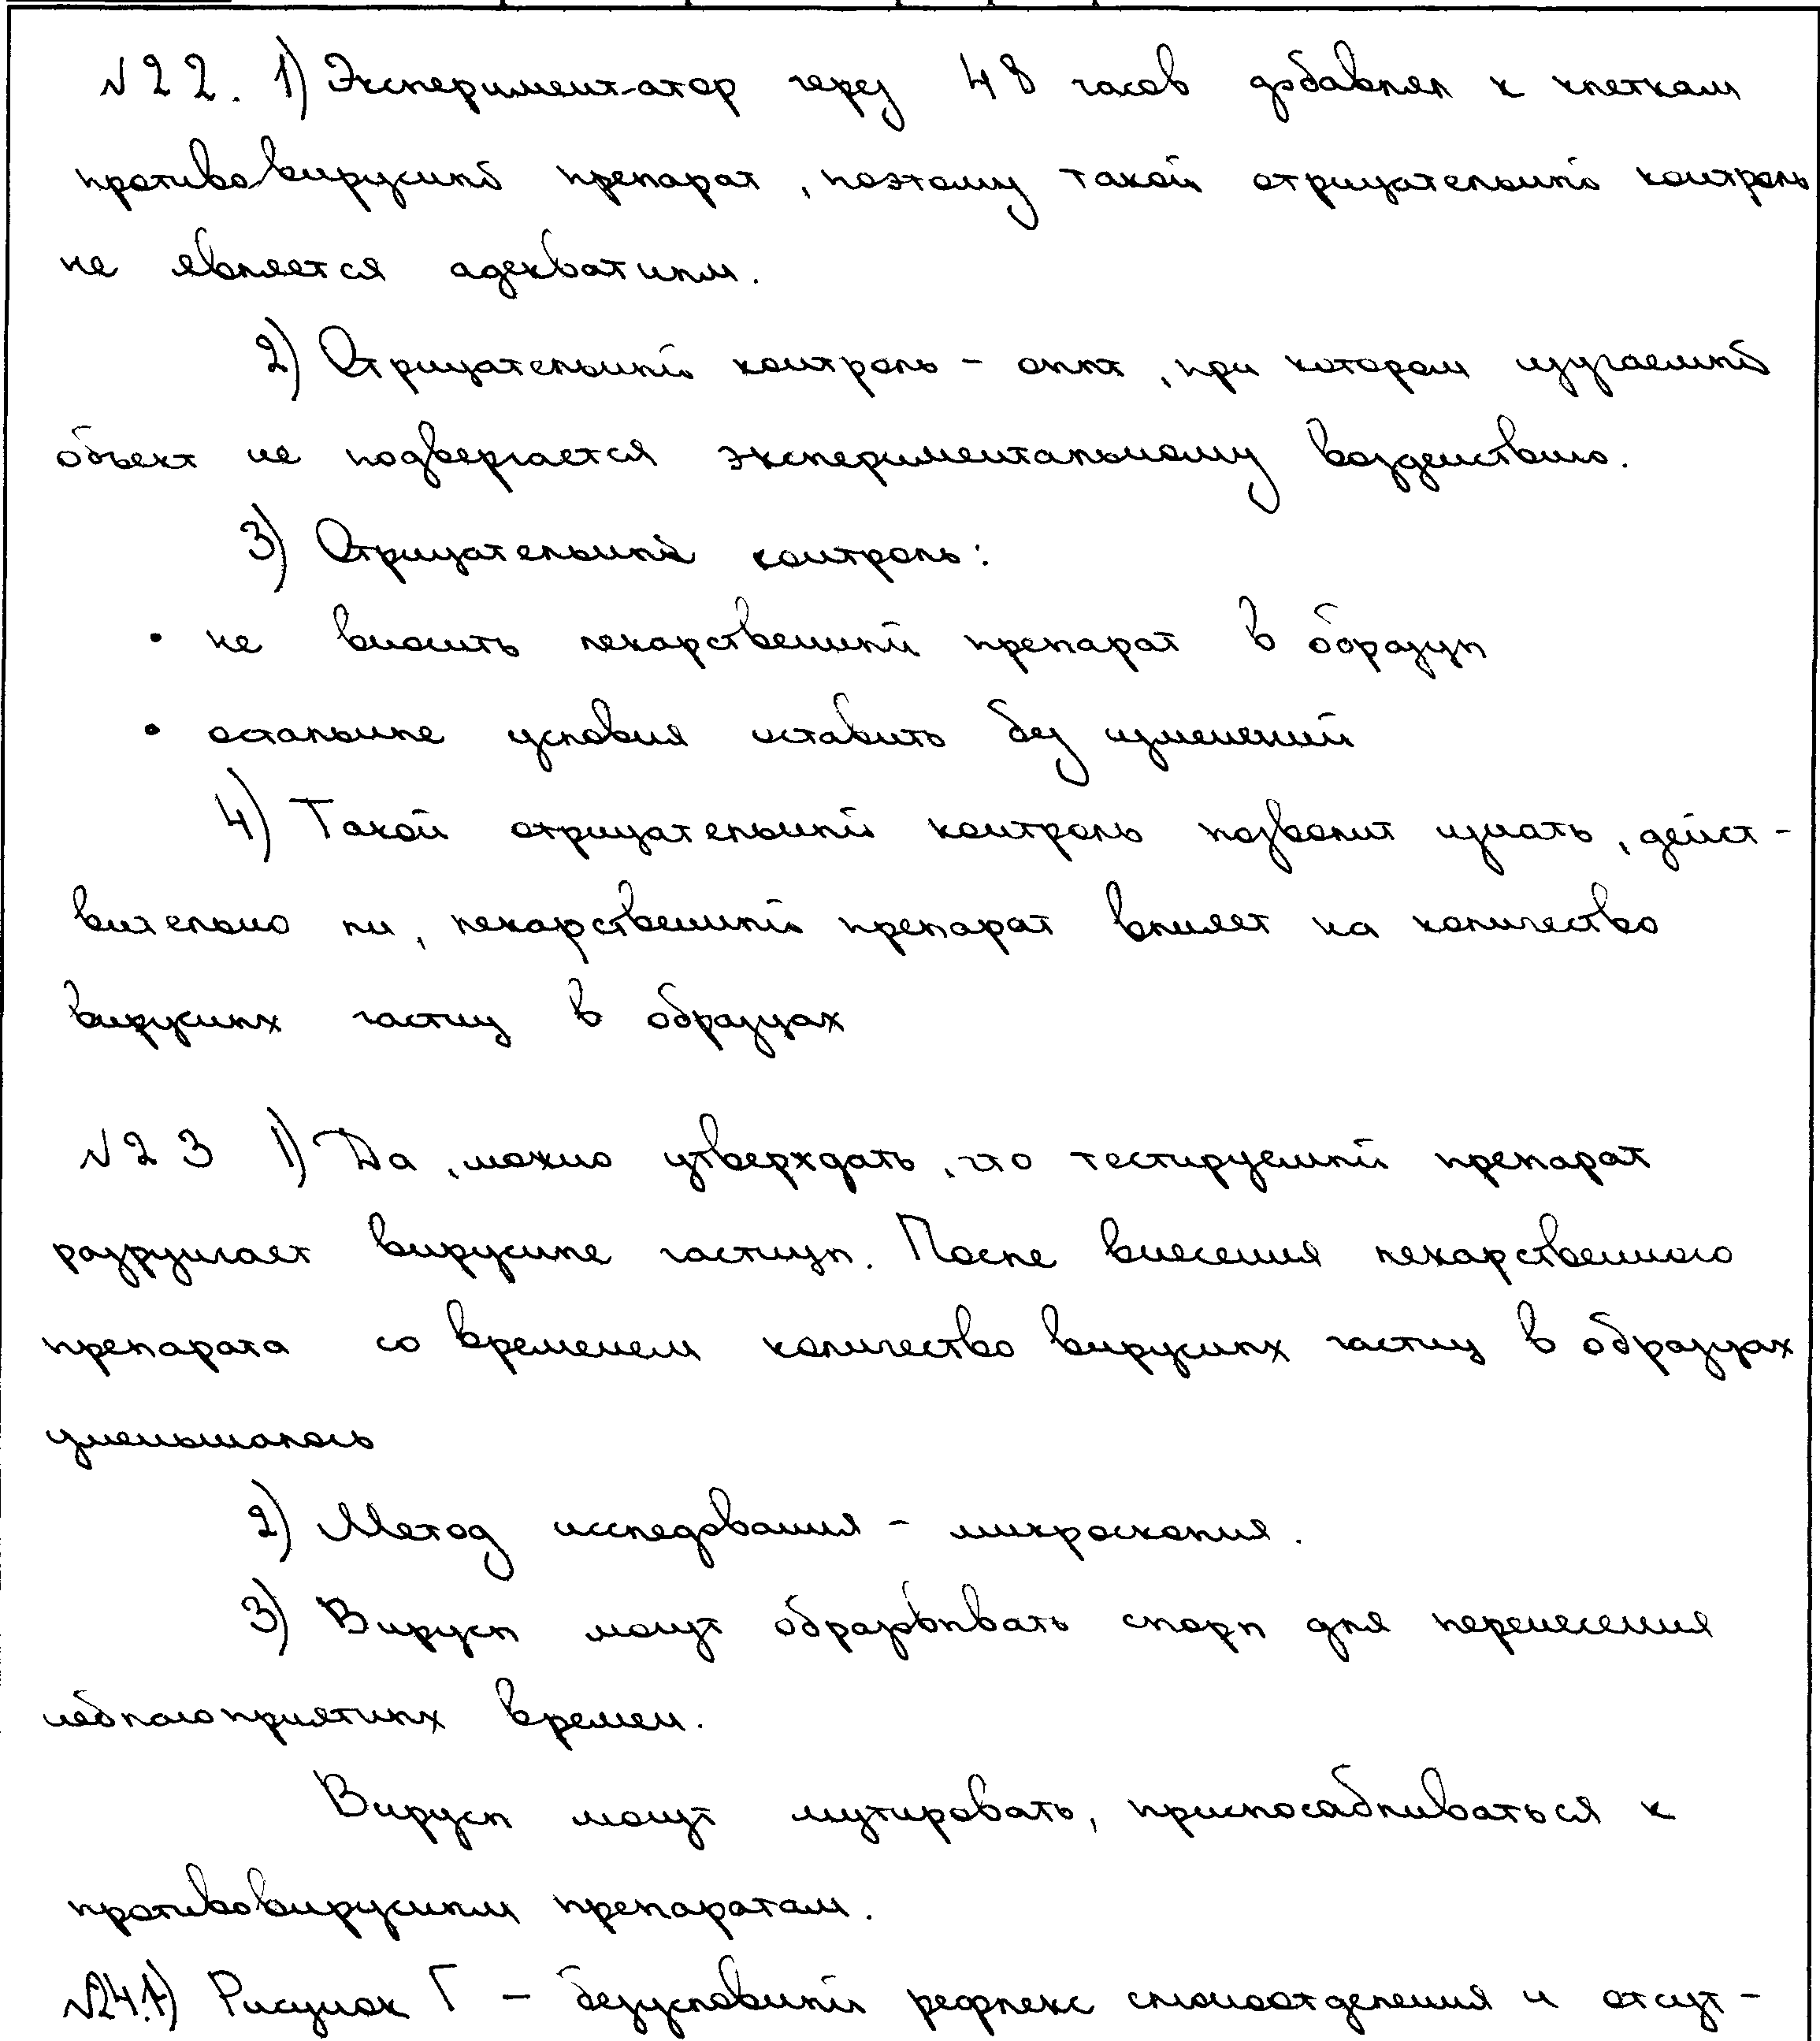 № 22. 1) Экспериментатор через 48 часов добавлял к клеткам
противовирусный препарат, поэтому такой отрицательный контроль
не является адекватным.
2) Отрицательный контроль – опыт, при котором изучаемый
объект не подвергается экспериментальному воздействию.
3) Отрицательный контроль:
• не вносить лекарственный препарат в образцы
• остальные условия оставить без изменений
4) Такой отрицательный контроль позволит узнать, дейст-
вительно ли, лекарственный препарат влияет на количество
вирусных частиц в образцах
№ 23 1) Да, можно утверждать, что тестируемый препарат
разрушает вирусные частицы. После внесения лекарственного
препарата со временем количество вирусных частиц в образцах
уменьшалось
2) Метод исследования – микроскопия.
3) Вирусы могут образовывать споры для перенесения
неблагоприятных времен.
Вирусы могут мутировать, приспосабливаться к
противовирусным препаратам.
№24.1) Рисунок Г – безусловный рефлекс слюноотделения и отсут-